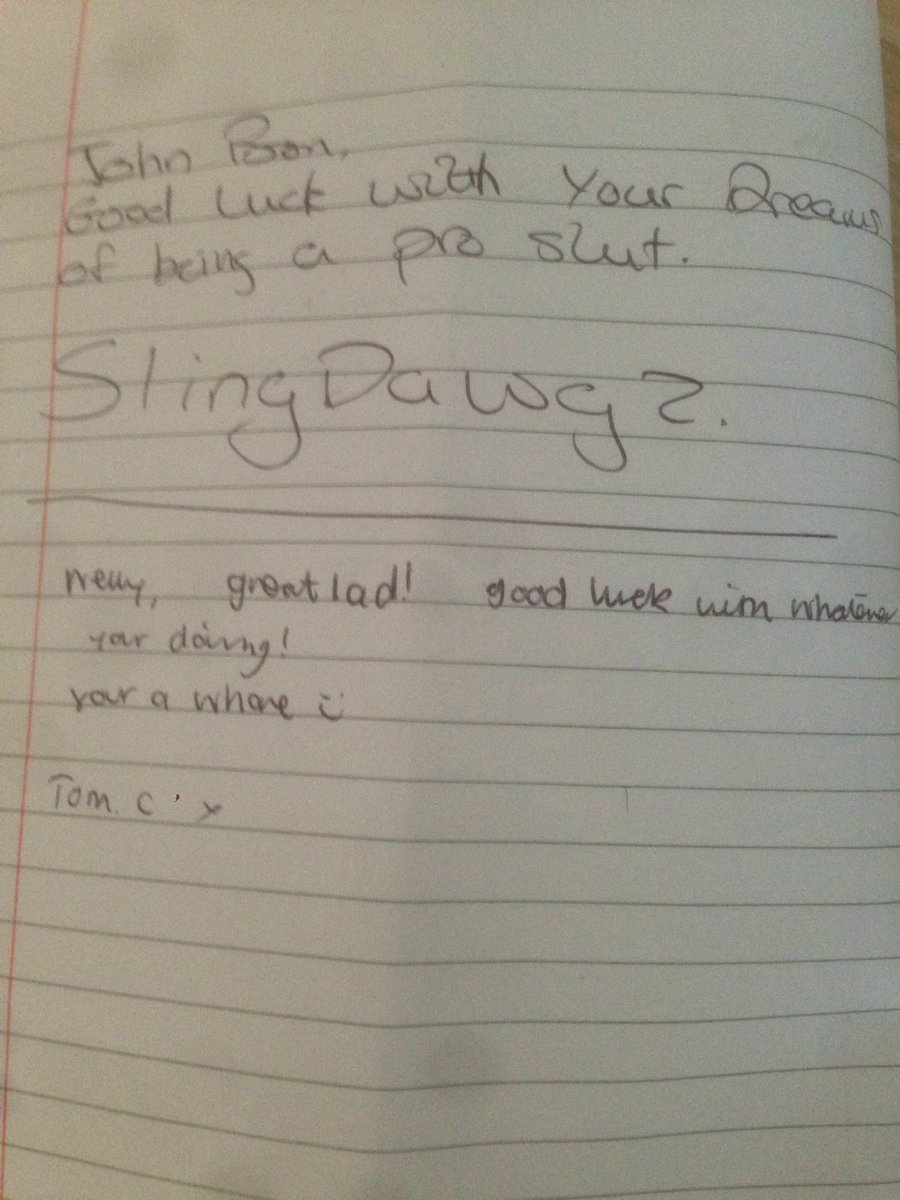 John Bon,
Good luck with Your Dreams
of being a pro slut.
SlingDawgz.
great lad! good luck with whatever
your doing!
your a whore :)
Tom. C x